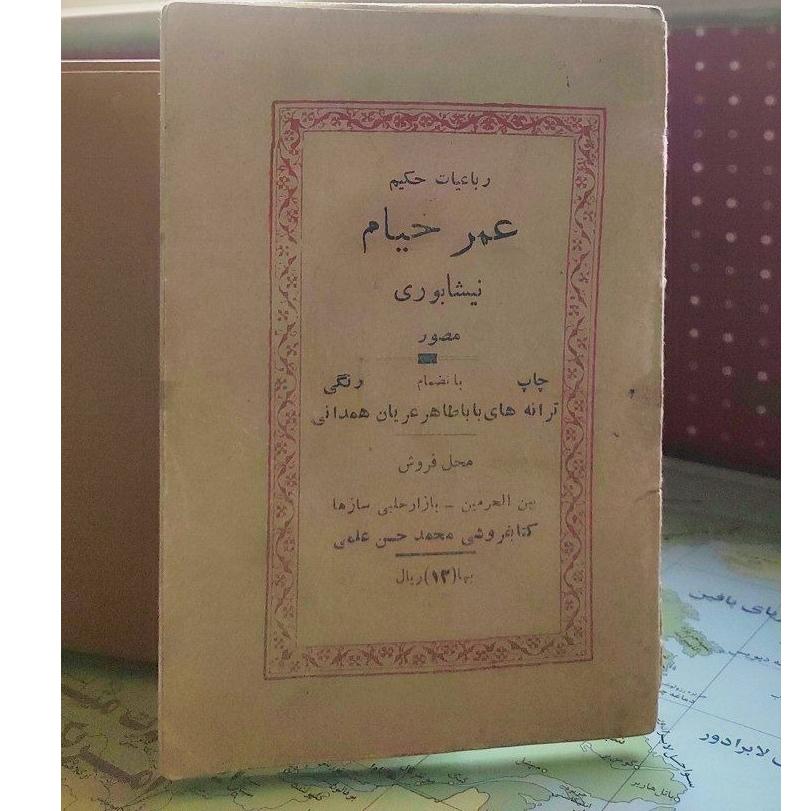 رباعیات حکیم
عمر خیام
نیشابوری
مصور
چاپ باانضمام رنگی
ترانه های باباطاهر عریان همدانی
محل فروش
بین الحرمین - بازار حلبی سازها
کتابفروشی محمد حسن علمی
بها (۱۳) ریال
لابرادور